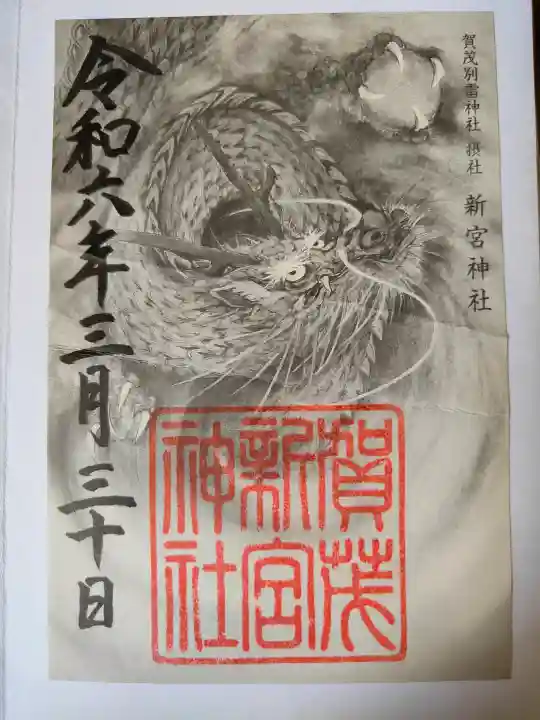 賀茂別雷神社 摂社 新宮神社
賀茂
新宮
神社
令和六年三月三十日